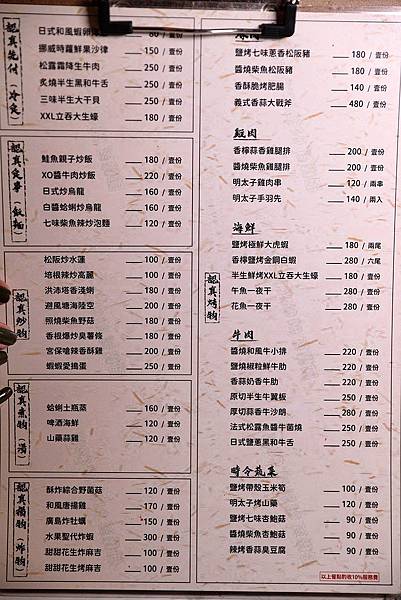 認真先付(冷食)
日式和風蝦卵 80 / 壹份
挪威時蘿鮮果沙律 150 / 壹份
松露霜降生牛肉 250 / 壹份
炙燒半生黑和牛舌 250 / 壹份
三味半生大干貝 250 / 壹份
XXL立吞大生蠔 180 / 壹份
認真食事(飯麵)
鮭魚親子炒飯 180 / 壹份
XO醬牛肉炒飯 220 / 壹份
日式炒烏龍 160 / 壹份
白醬蛤蜊炒烏龍 160 / 壹份
七味柴魚辣炒泡麵 120 / 壹份
認真炒物
松阪炒水蓮 100 / 壹份
培根辣炒高麗 100 / 壹份
洪沛塔香淺蜊 180 / 壹份
避風塘海陸空 200 / 壹份
照燒柴魚野菇 180 / 壹份
香根爆炒臭薯條 180 / 壹份
宮保嗆辣香酥雞 200 / 壹份
蝦蝦愛搗蛋 250 / 壹份
認真煮物(湯)
蛤蜊土瓶蒸 160 / 壹份
啤酒海鮮 120 / 壹份
山藥蒜雞 120 / 壹份
認真揚物(炸物)
酥炸綜合野菌菇 120 / 壹份
和風唐揚雞 170 / 壹份
廣島炸牡蠣 150 / 壹份
水果聖代炸蝦 300 / 壹份
甜甜花生炸麻吉 100 / 壹份
甜甜花生烤麻吉 100 / 壹份
認真烤物
鹽烤七味蔥香松阪豬 180 / 壹份
醬燒柴魚松阪豬 180 / 壹份
香酥脆烤肥腸 140 / 壹份
義式香蒜大戰斧 480 / 壹份
雞肉
香檸蒜香雞腿排 200 / 壹份
醬燒柴魚雞腿排 200 / 壹份
明太子雞肉串 120 / 兩串
明太子手羽先 140 / 兩入
海鮮
鹽烤極鮮大虎蝦 180 / 兩尾
香檸鹽烤金鋼白蝦 280 / 六尾
半生鮮烤XXL立吞大生蠔 180 / 壹份
午魚一夜干 280 / 壹份
花魚一夜干 280 / 壹份
牛肉
醬燒和風牛小排 220 / 壹份
鹽燒椒粒鮮牛肋 220 / 壹份
香蒜奶香牛肋 220 / 壹份
原切半生牛翼板 250 / 壹份
厚切蒜香牛沙朗 280 / 壹份
法式松露醬牛菌燒 250 / 壹份
日式鹽蔥黑和牛舌 250 / 壹份
時令蔬菜
鹽烤帶殼玉米筍 100 / 壹份
明太子烤山藥 120 / 壹份
鹽烤七味杏鮑菇 90 / 壹份
醬燒柴魚杏鮑菇 90 / 壹份
辣烤香蒜臭豆腐 90 / 壹份
以上餐點酌收10%服務費